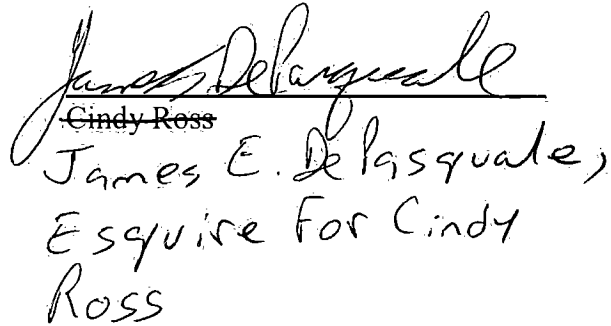 James DePasquale
Cindy Ross
James E. DePasquale,
Esquire For Cindy
Ross